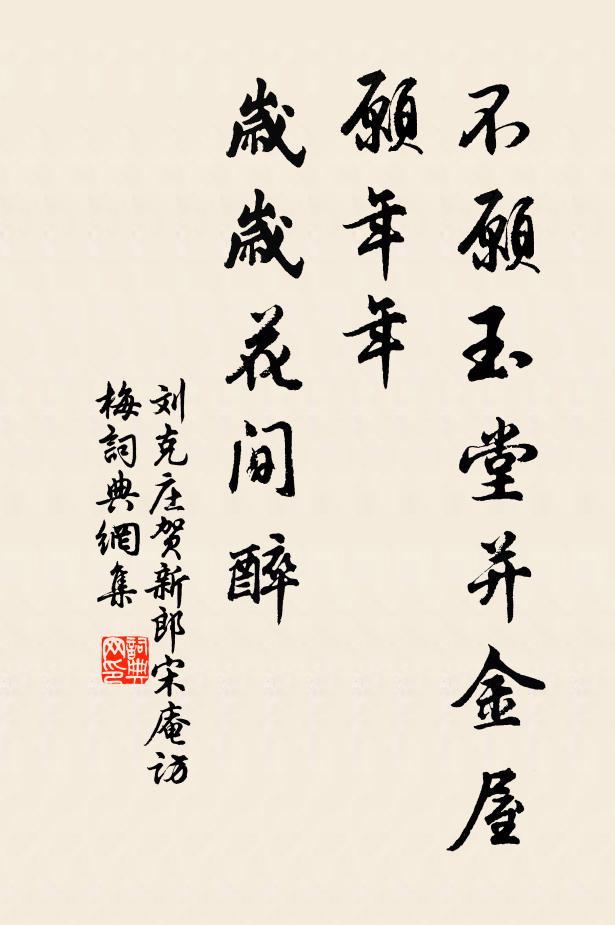 不願玉堂并金屋
願年年
歲歲花间醉
刘克庄贺新郎宋庵访
梅詞典網集
詞典网印